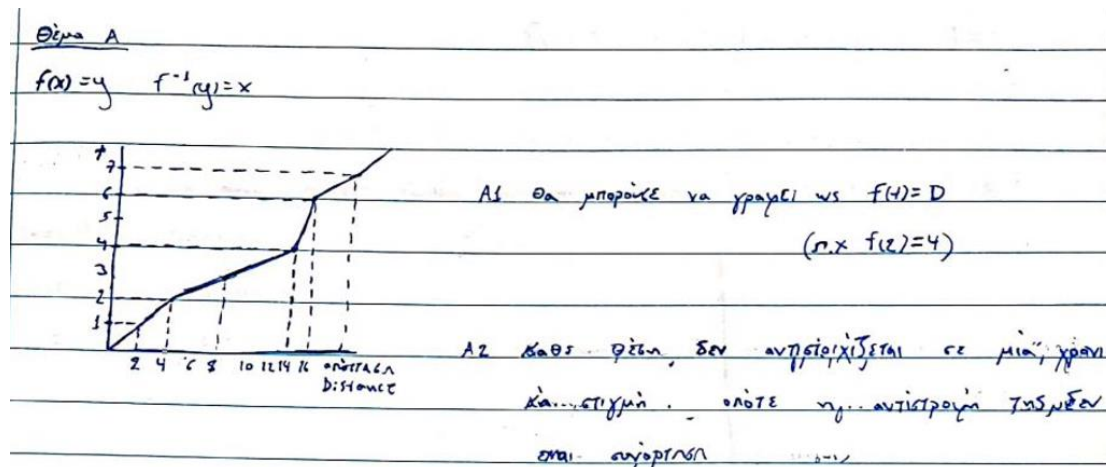 Θέμα Α
f(x)=y f⁻¹(y)=x
t
7
6
5
4
3
2
1
2 4 6 8 10 12 14 16 απόσταση
Distance
A1 θα μπορούσε να γραφεί ως f(t)=D
(π.χ f(2)=4)
A2 καθε θέση δεν αντιστοιχίζεται σε μία χρονι
κή στιγμή. οπότε η αντιστροφή της δεν
ειναι συνάρτηση